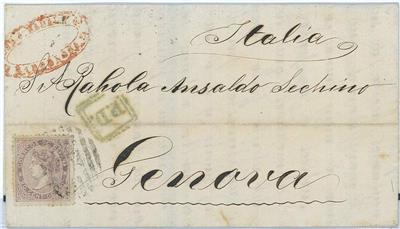 Italia
Sr Rahola Ansaldo Sechino
P.D.
Genova